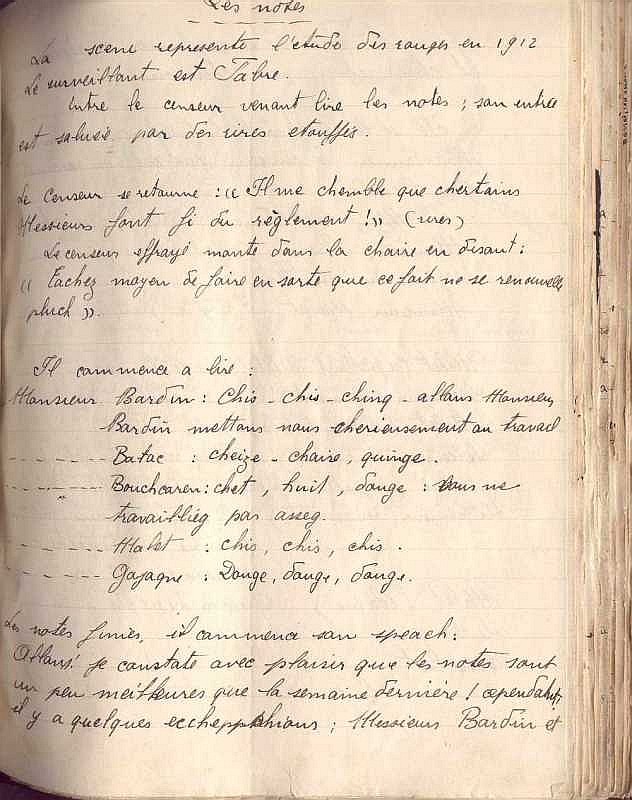 Les notes
La scene represente l'etude des rouges en 1912
Le surveillant est Fabre.
Entre le censeur venant lire les notes ; son entrée
est saluée par des rires etouffés.
Le Censeur se retourne : « Il me chemble que chertains
Messieurs font fi du règlement ! » (rires)
Le censeur effrayé monte dans la chaire en disant :
« Tachez moyen de faire en sorte que ce fait ne se renouvelle
pluch ».
Il commence a lire :
Monsieur Bardin : Chis - chis - chinq - allons Monsieur
Bardin mettons nous cherieusement au travail
- - - - - - - Batac : cheize - chaize, quinze.
- - - - - - - Bouchcaren : chet, huit, douze : vous ne
travaillieg pas asseg.
- - - - - - - Malet : chis, chis, chis.
- - - - - - - Gajagne : Douze, douze, douze.
Les notes finies, il commence son speach :
Allons ! je constate avec plaisir que les notes sont
un peu meilleures que la semaine dernière ! cependant,
il y a quelques ecchepptchions ; Messieurs Bardin et